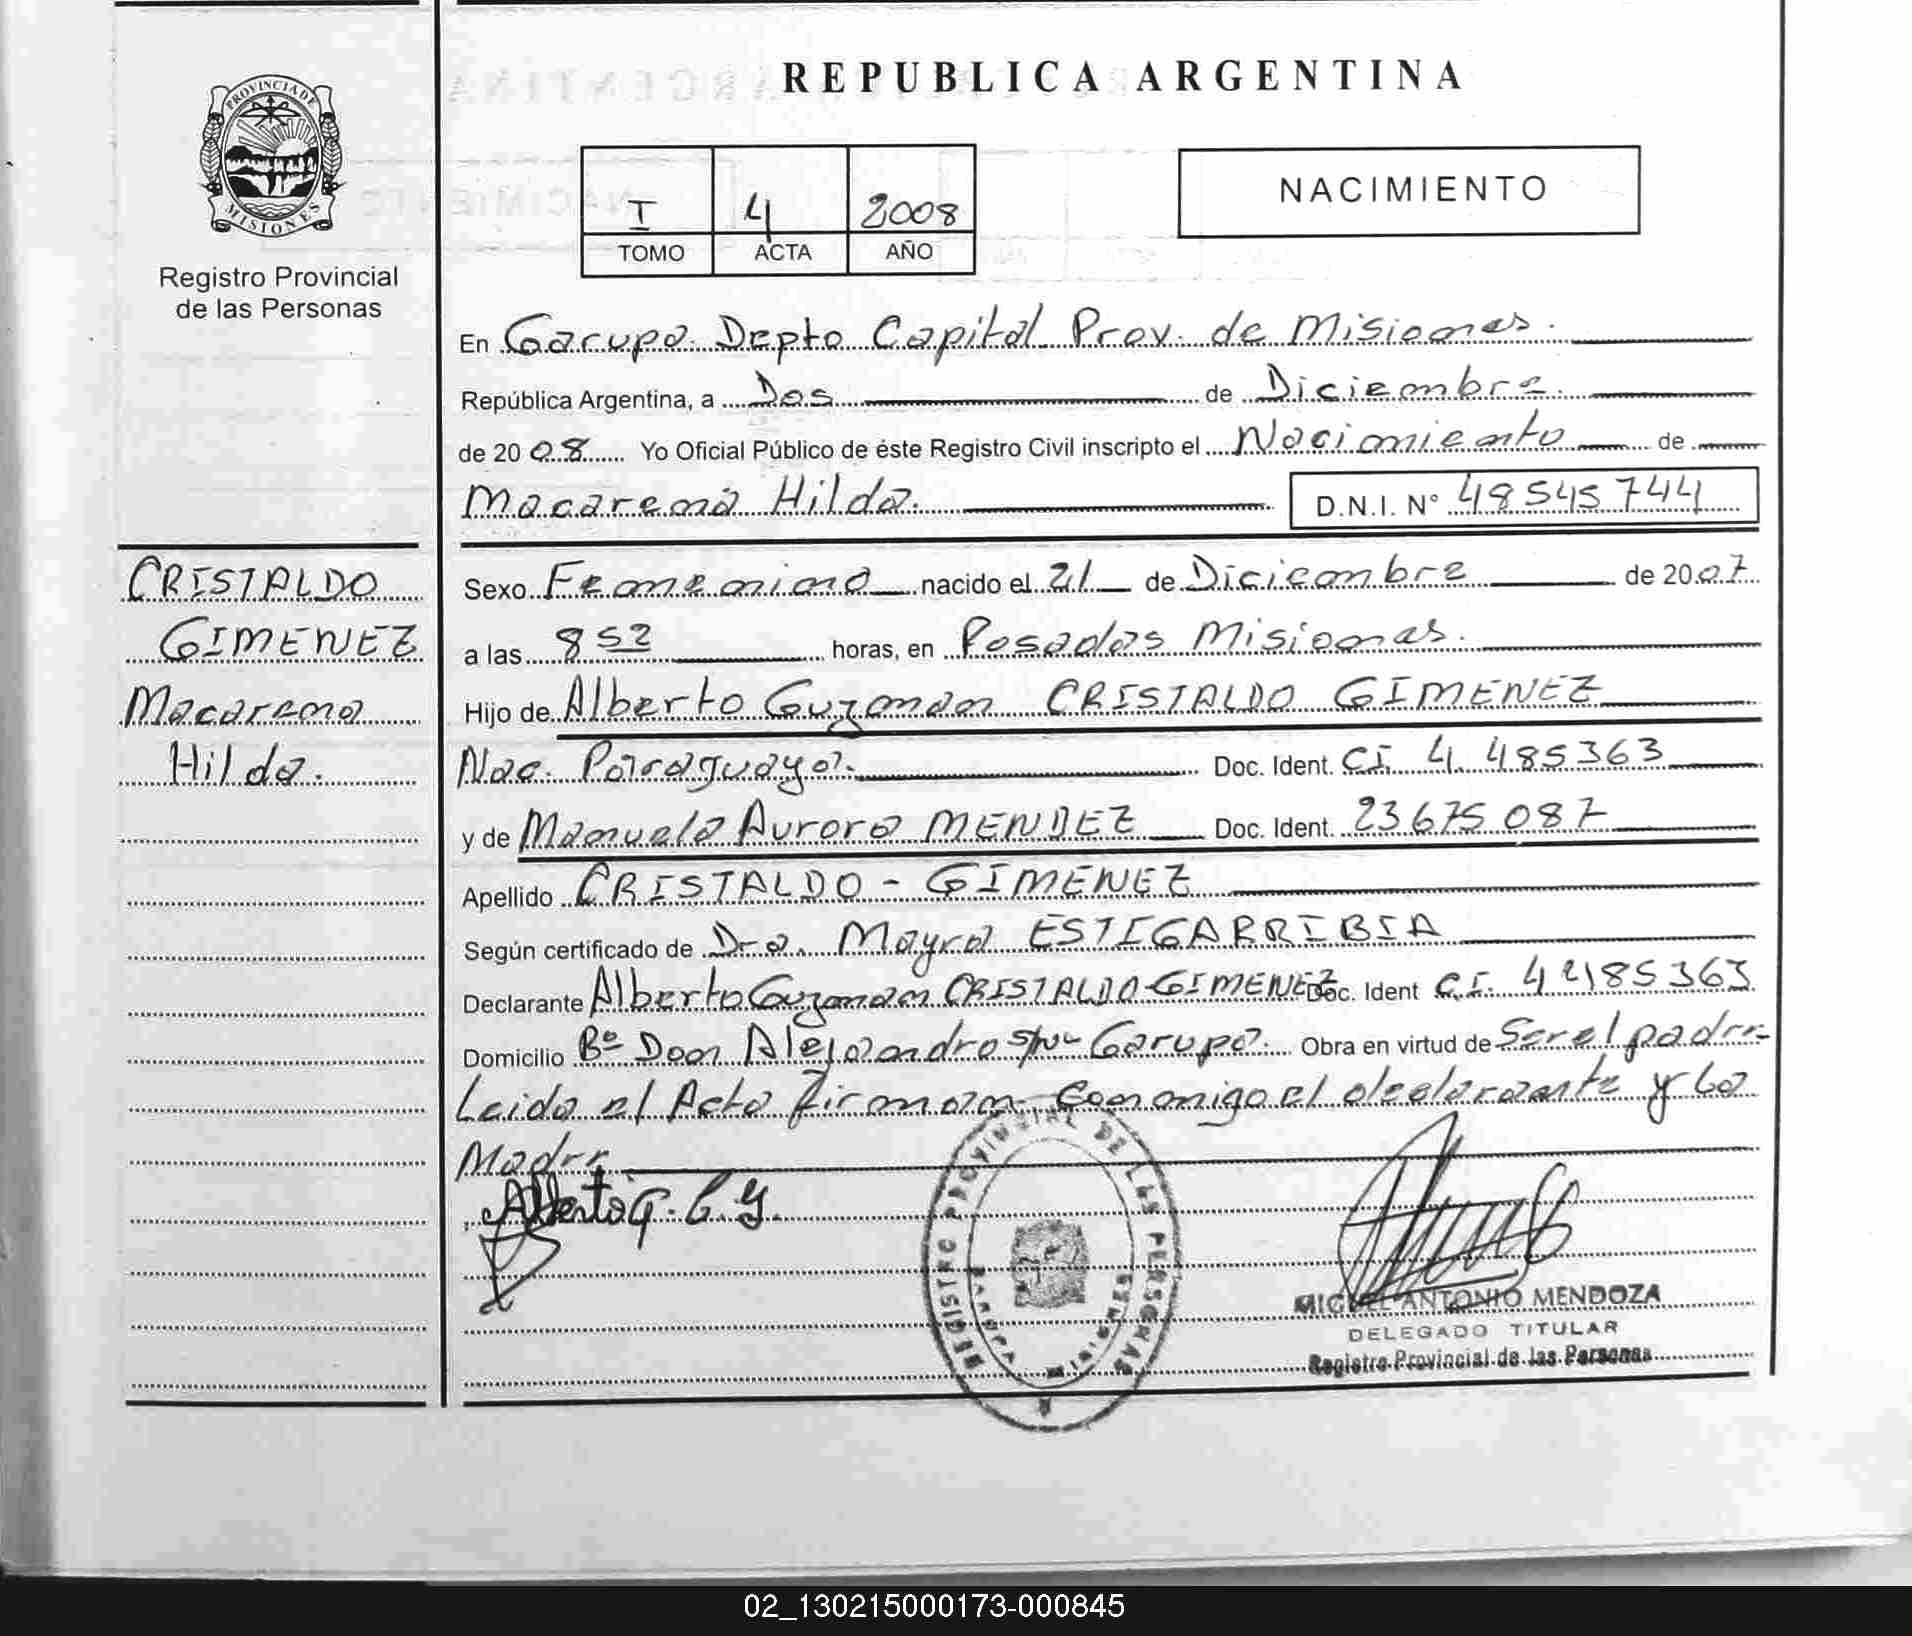 REPUBLICA ARGENTINA
PROVINCIA DE
MISIONES
Registro Provincial
de las Personas
I 4 2008
TOMO ACTA AÑO
NACIMIENTO
En Garupa Depto Capital Prov. de Misiones.
República Argentina, a Dos de Diciembre.
de 2008 Yo Oficial Público de éste Registro Civil inscripto el Nacimiento de
Macarena Hilda. D.N.I. N° 48545744
CRISTALDO
GIMENEZ
Macarena
Hilda.
Sexo Femenino nacido el 21 de Diciembre de 2007
a las 8 52 horas, en Posadas Misiones.
Hijo de Alberto Guzman CRISTALDO GIMENEZ
Nac. Paraguaya. Doc. Ident. CI 4.485363
y de Manuela Aurora MENDEZ Doc. Ident. 23675087
Apellido CRISTALDO - GIMENEZ
Según certificado de Dra. Mayra ESTIGARRIBIA
Declarante Alberto Guzman CRISTALDO GIMENEZ Doc. Ident C.I. 4485363
Domicilio Bº Don Alejandro Garupa. Obra en virtud de Ser el padre
Leida el Acta firman Conmigo el declarante y la
Madre
Alberto G. C. G.
REGISTRO PROVINCIAL DE LAS PERSONAS
GARUPA MISIONES
MIGUEL ANTONIO MENDOZA
DELEGADO TITULAR
Registro Provincial de las Personas
02_130215000173-000845